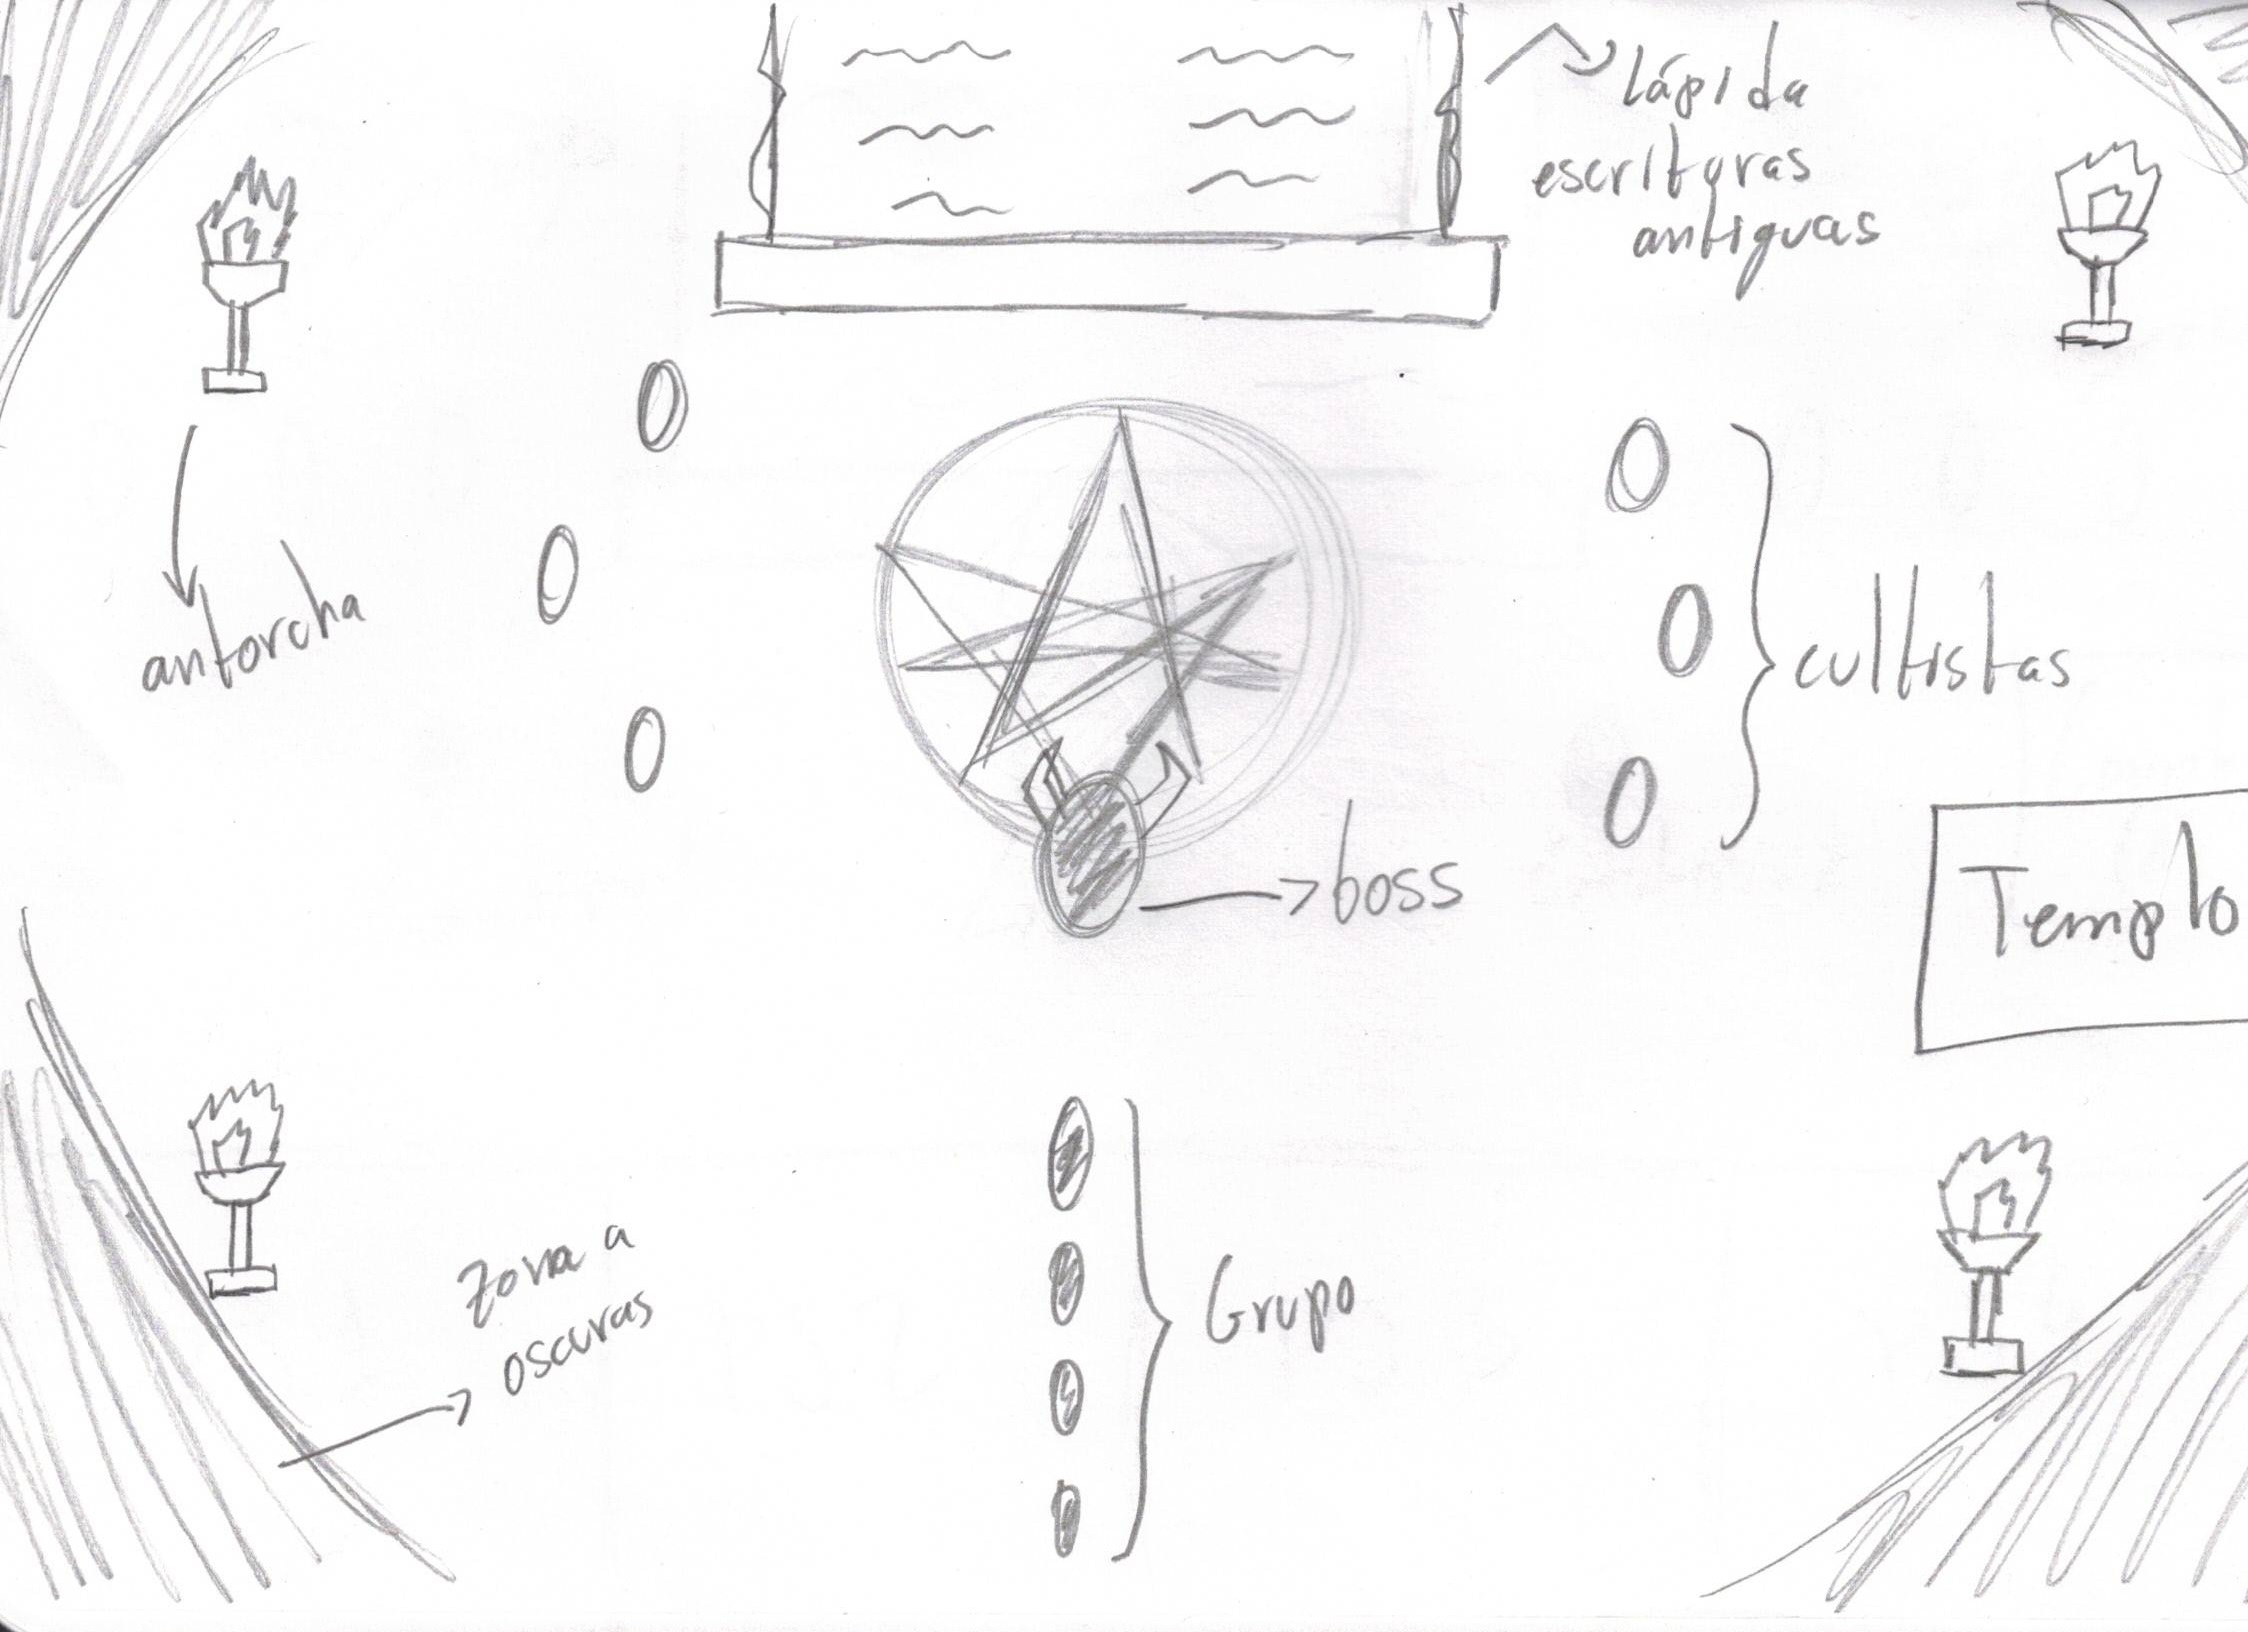 Lápida
escrituras
antiguas
antorcha
cultistas
boss
Templo
Zona a
oscuras
Grupo